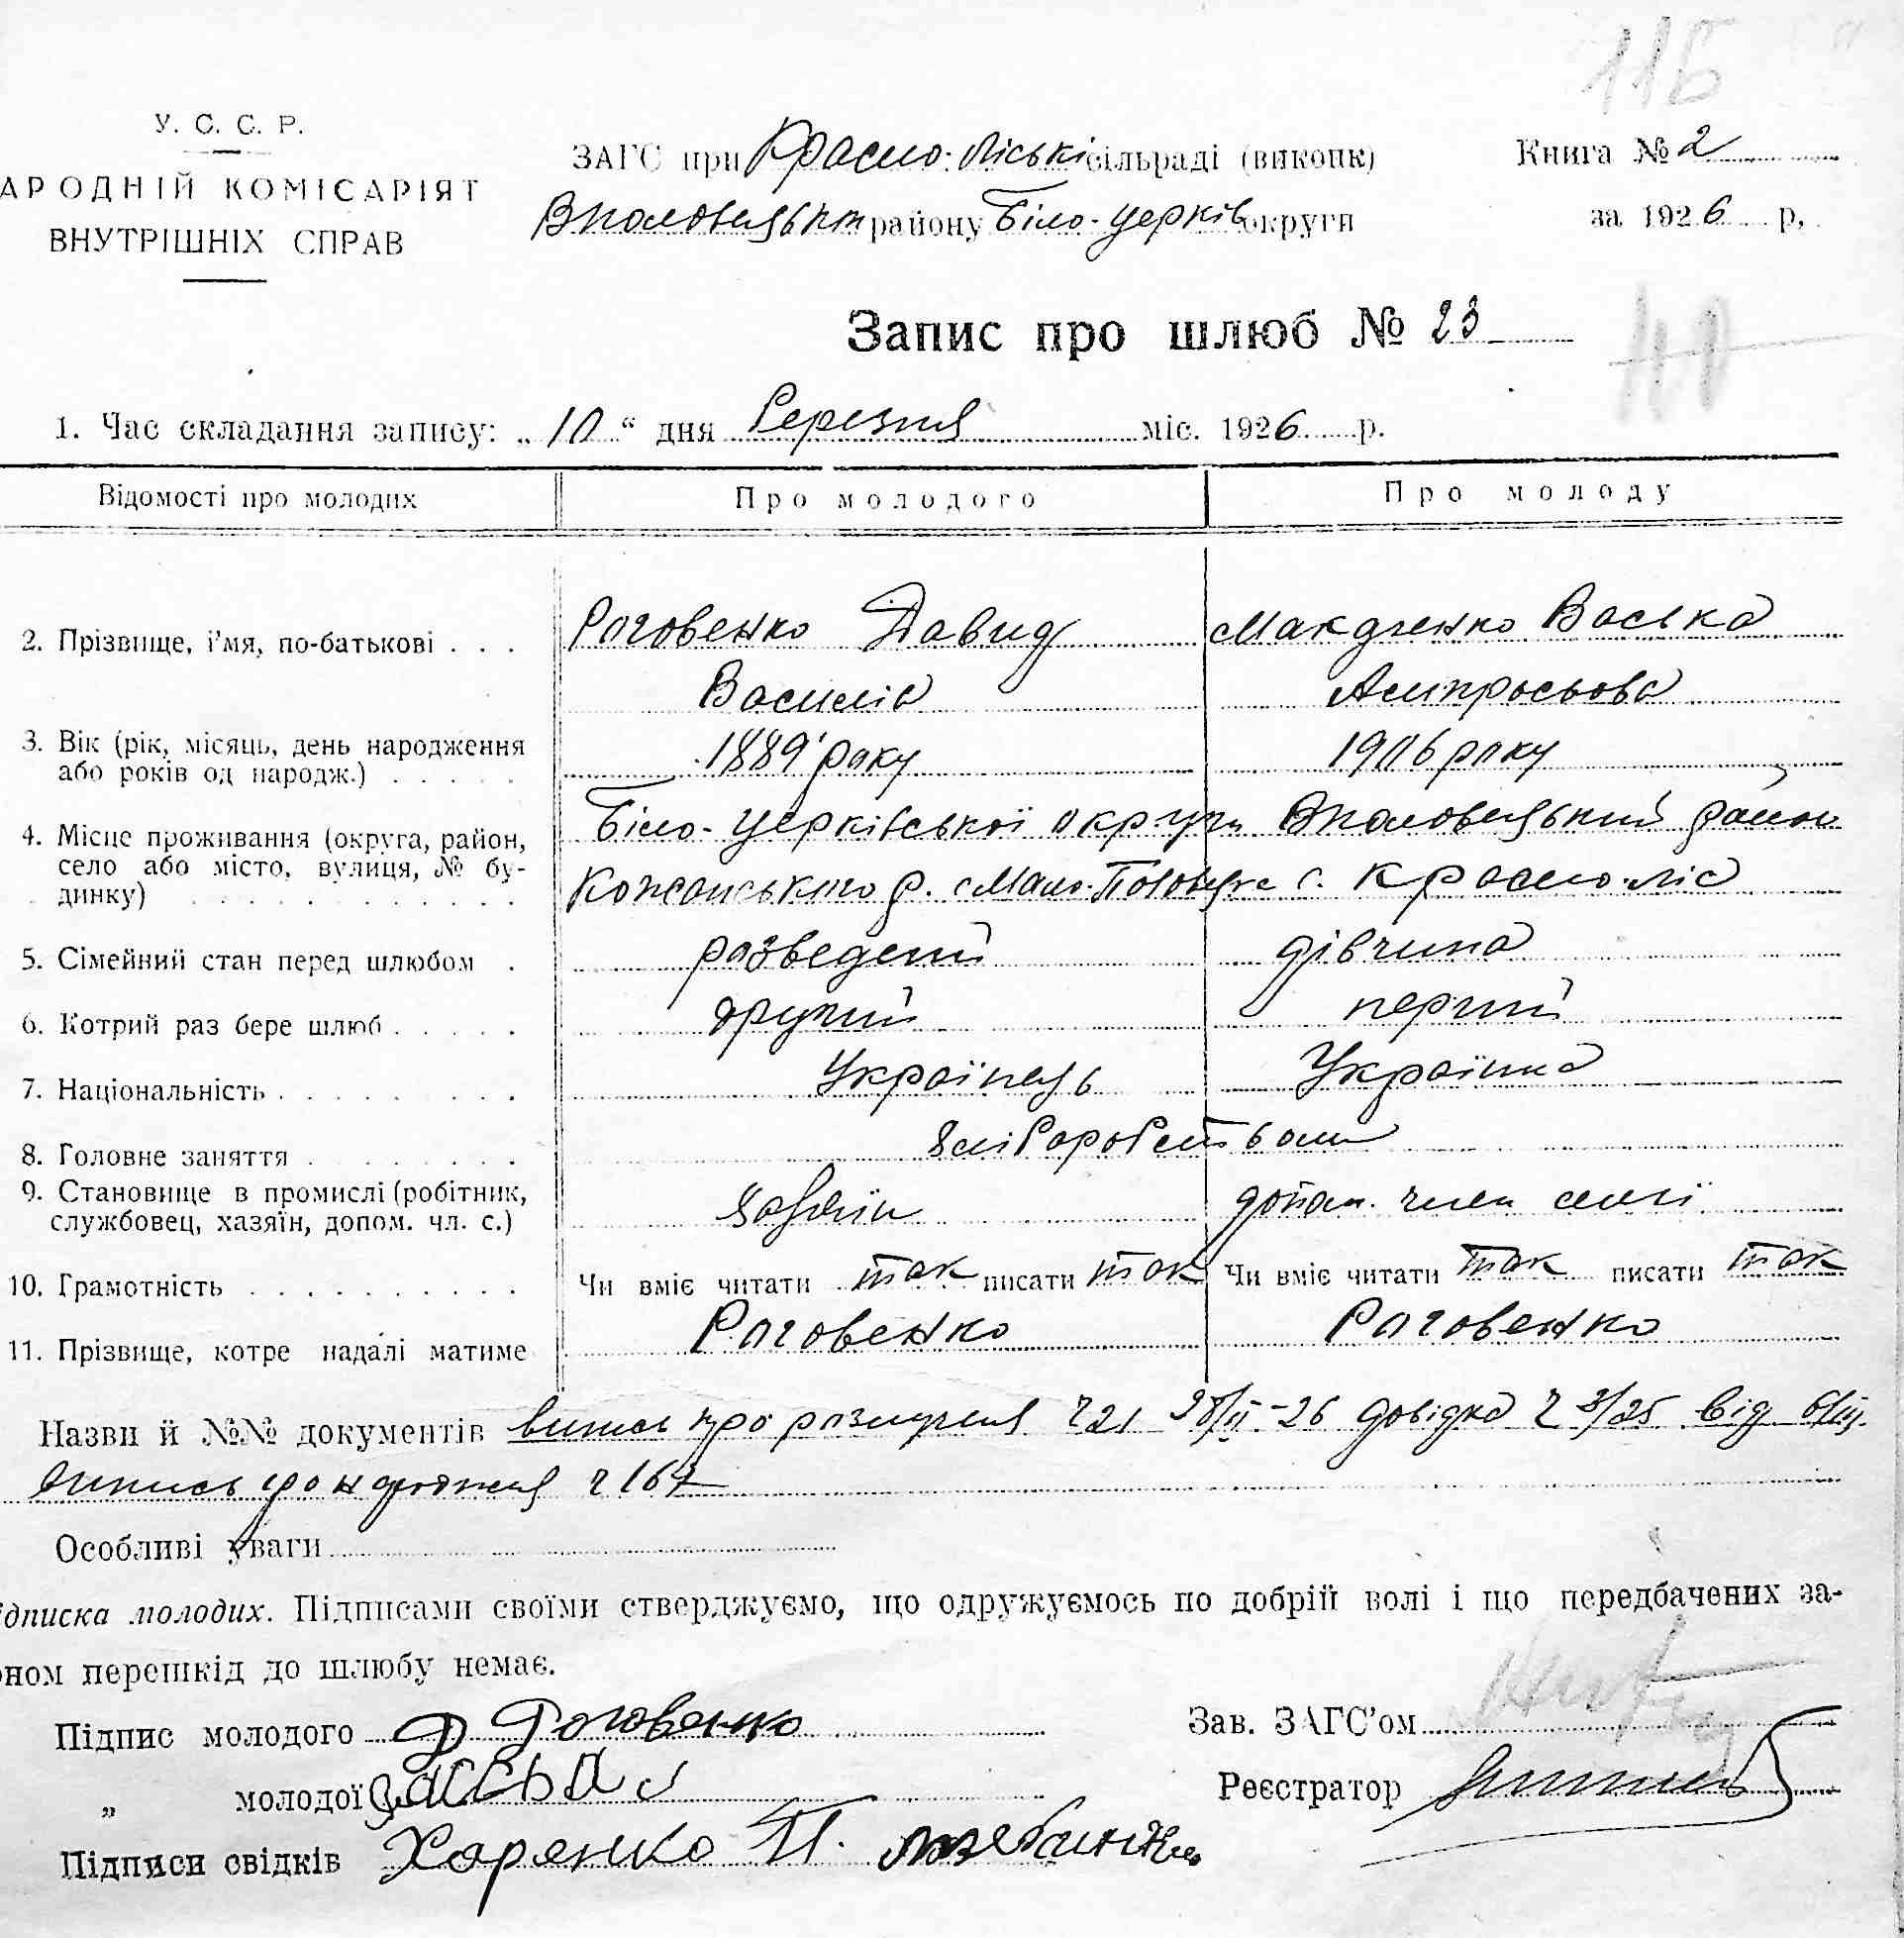 11Б
У. С. С. Р.
АРОДНІЙ КОМІСАРІЯТ
ВНУТРІШНІХ СПРАВ
ЗАГС при Красно-Ліські сільраді (виконк)
района Біло-церків округи
Книга № 2
за 1926 р,
Запис про шлюб № 23
1. Час складання запису: „ 10 “ дня Березня міс. 1926 р.
Відомості про молодих Про молодого Про молоду
2. Прізвище, і'мя, по-батькові . . . Роговенко Давид Васька
Василів
3. Вік (рік, місяць, день народження або років од народж.) . . . . . 1889 року 1906 року
4. Місце проживання (округа, район, село або місто, вулиця, № будинку) . . . . . . . . . . . . Біло-Церківської округи район
Кожанського р. с Мало-Половецьке с. Красно-ліс
5. Сімейний стан перед шлюбом . розведений дівчина
6. Котрий раз бере шлюб . . . . . другий перший
7. Національність . . . . . . . . . Українець Українка
8. Головне заняття . . . . . . . . хліборобством
9. Становище в промислі (робітник, службовец, хазяїн, допом. чл. с.) хазяїн допом. член семї
10. Грамотність . . . . . . . . . . . Чи вміє читати так писати так Чи вміє читати так писати так
11. Прізвище, котре надалі матиме Роговенко Роговенко
Назви й №№ документів випись про розлученя Ч 21 28/II-26 довідка Ч 3/25 від
випись про народженя ч 167
Особливі уваги
ідписка молодих. Підписами своїми стверджуємо, що одружуємось по добрій волі і що передбачених за-
оном перешкід до шлюбу немає.
Підпис молодого Д Роговенко
Зав. ЗАГС'ом
„ молодої
Реєстратор
Підписи свідків Харенко П.